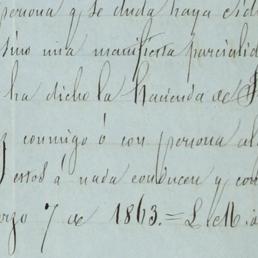 persona y se duda haya sido
sino una manifiesta parcialid
ha dicho la Hacienda de S
conmigo ó con persona al
estos á nada conducen y con
rzo 7 de 1863.= L. M.